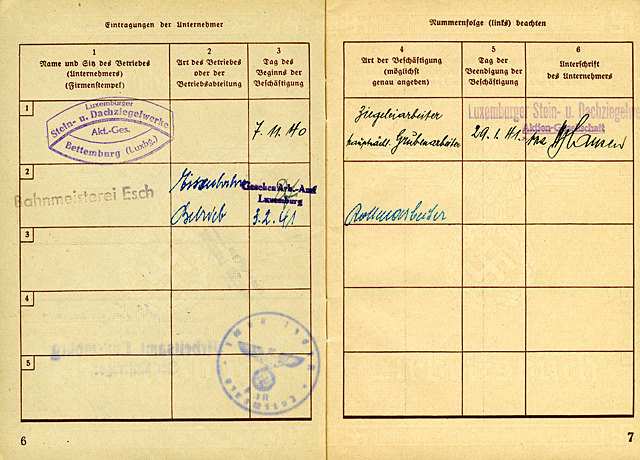 Eintragungen der Unternehmer
1
Name und Sitz des Betriebes
(Unternehmers)
(Firmenstempel)
2
Art des Betriebes
oder der
Betriebsabteilung
3
Tag des
Beginns der
Beschäftigung
1
Luxemburger
Stein- u. Dachziegelwerke
Akt.-Ges.
Bettemburg (Luxbg.)
7. 11. 40
2
Bahnmeisterei Esch
Eisenbahn
Betrieb
Gesehen Arb.-Amt
Luxemburg
3.2.41
3
4
5
6
Nummernfolge (links) beachten
4
Art der Beschäftigung
(möglichst
genau angeben)
5
Tag der
Beendigung der
Beschäftigung
6
Unterschrift
des Unternehmers
Ziegeleiarbeiter
hauptsächl. Grubenarbeiter
29. 1. 41.
Luxemburger Stein- u. Dachziegelwe
Aktien-Gesellschaft
ppa
Rottenarbeiter
7